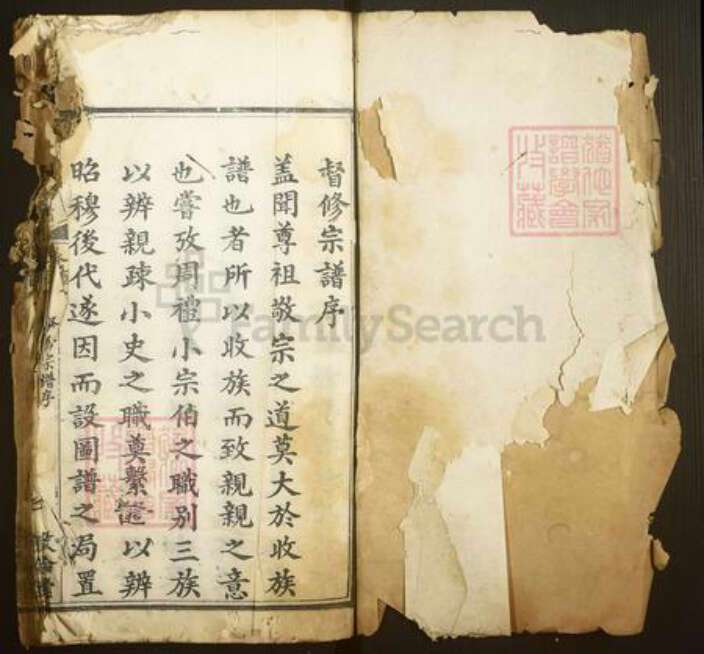 督修宗譜序
盖聞尊祖敬宗之道莫大於收族
譜也者所以收族而致親親之意
也嘗攷周禮小宗伯之職別三族
以辨親疎小史之職奠繫世以辨
昭穆後代遂因而設圖譜之局置
宗譜序
FamilySearch
譜學會
收藏